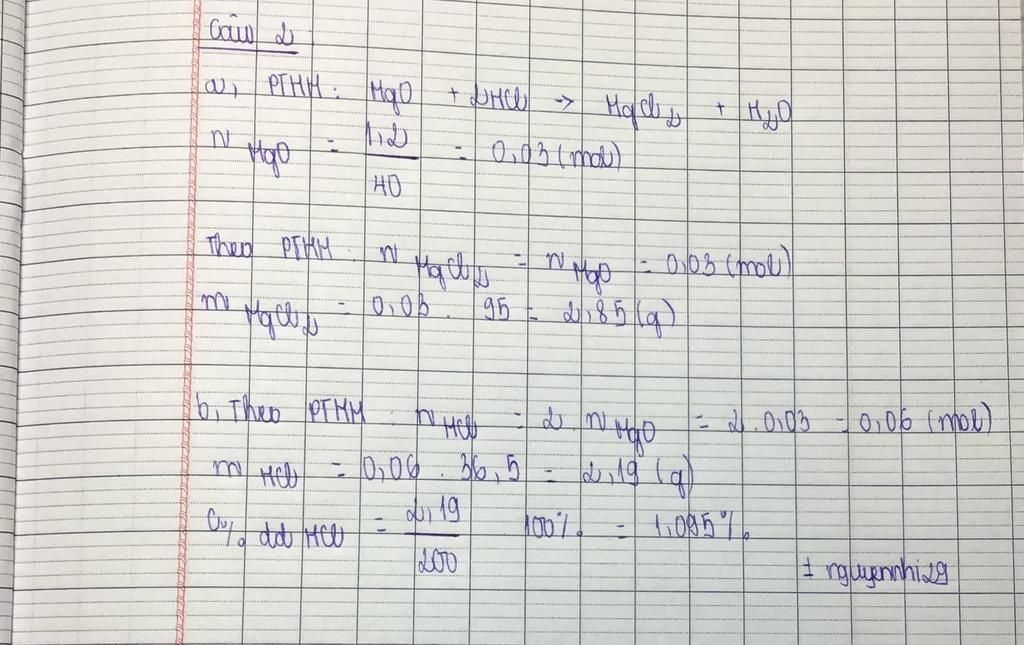 Câu 2
a, PTHH: MgO + 2HCl → MgCl2 + H2O
n MgO = 1,2 / 40 = 0,03 (mol)
Theo PTHH: n MgCl2 = n MgO = 0,03 (mol)
m MgCl2 = 0,03 . 95 = 2,85 (g)
b, Theo PTHH: n HCl = 2 n MgO = 2 . 0,03 = 0,06 (mol)
m HCl = 0,06 . 36,5 = 2,19 (g)
C% dd HCl = 2,19 / 200 100% = 1,095%
± nguyennhi29